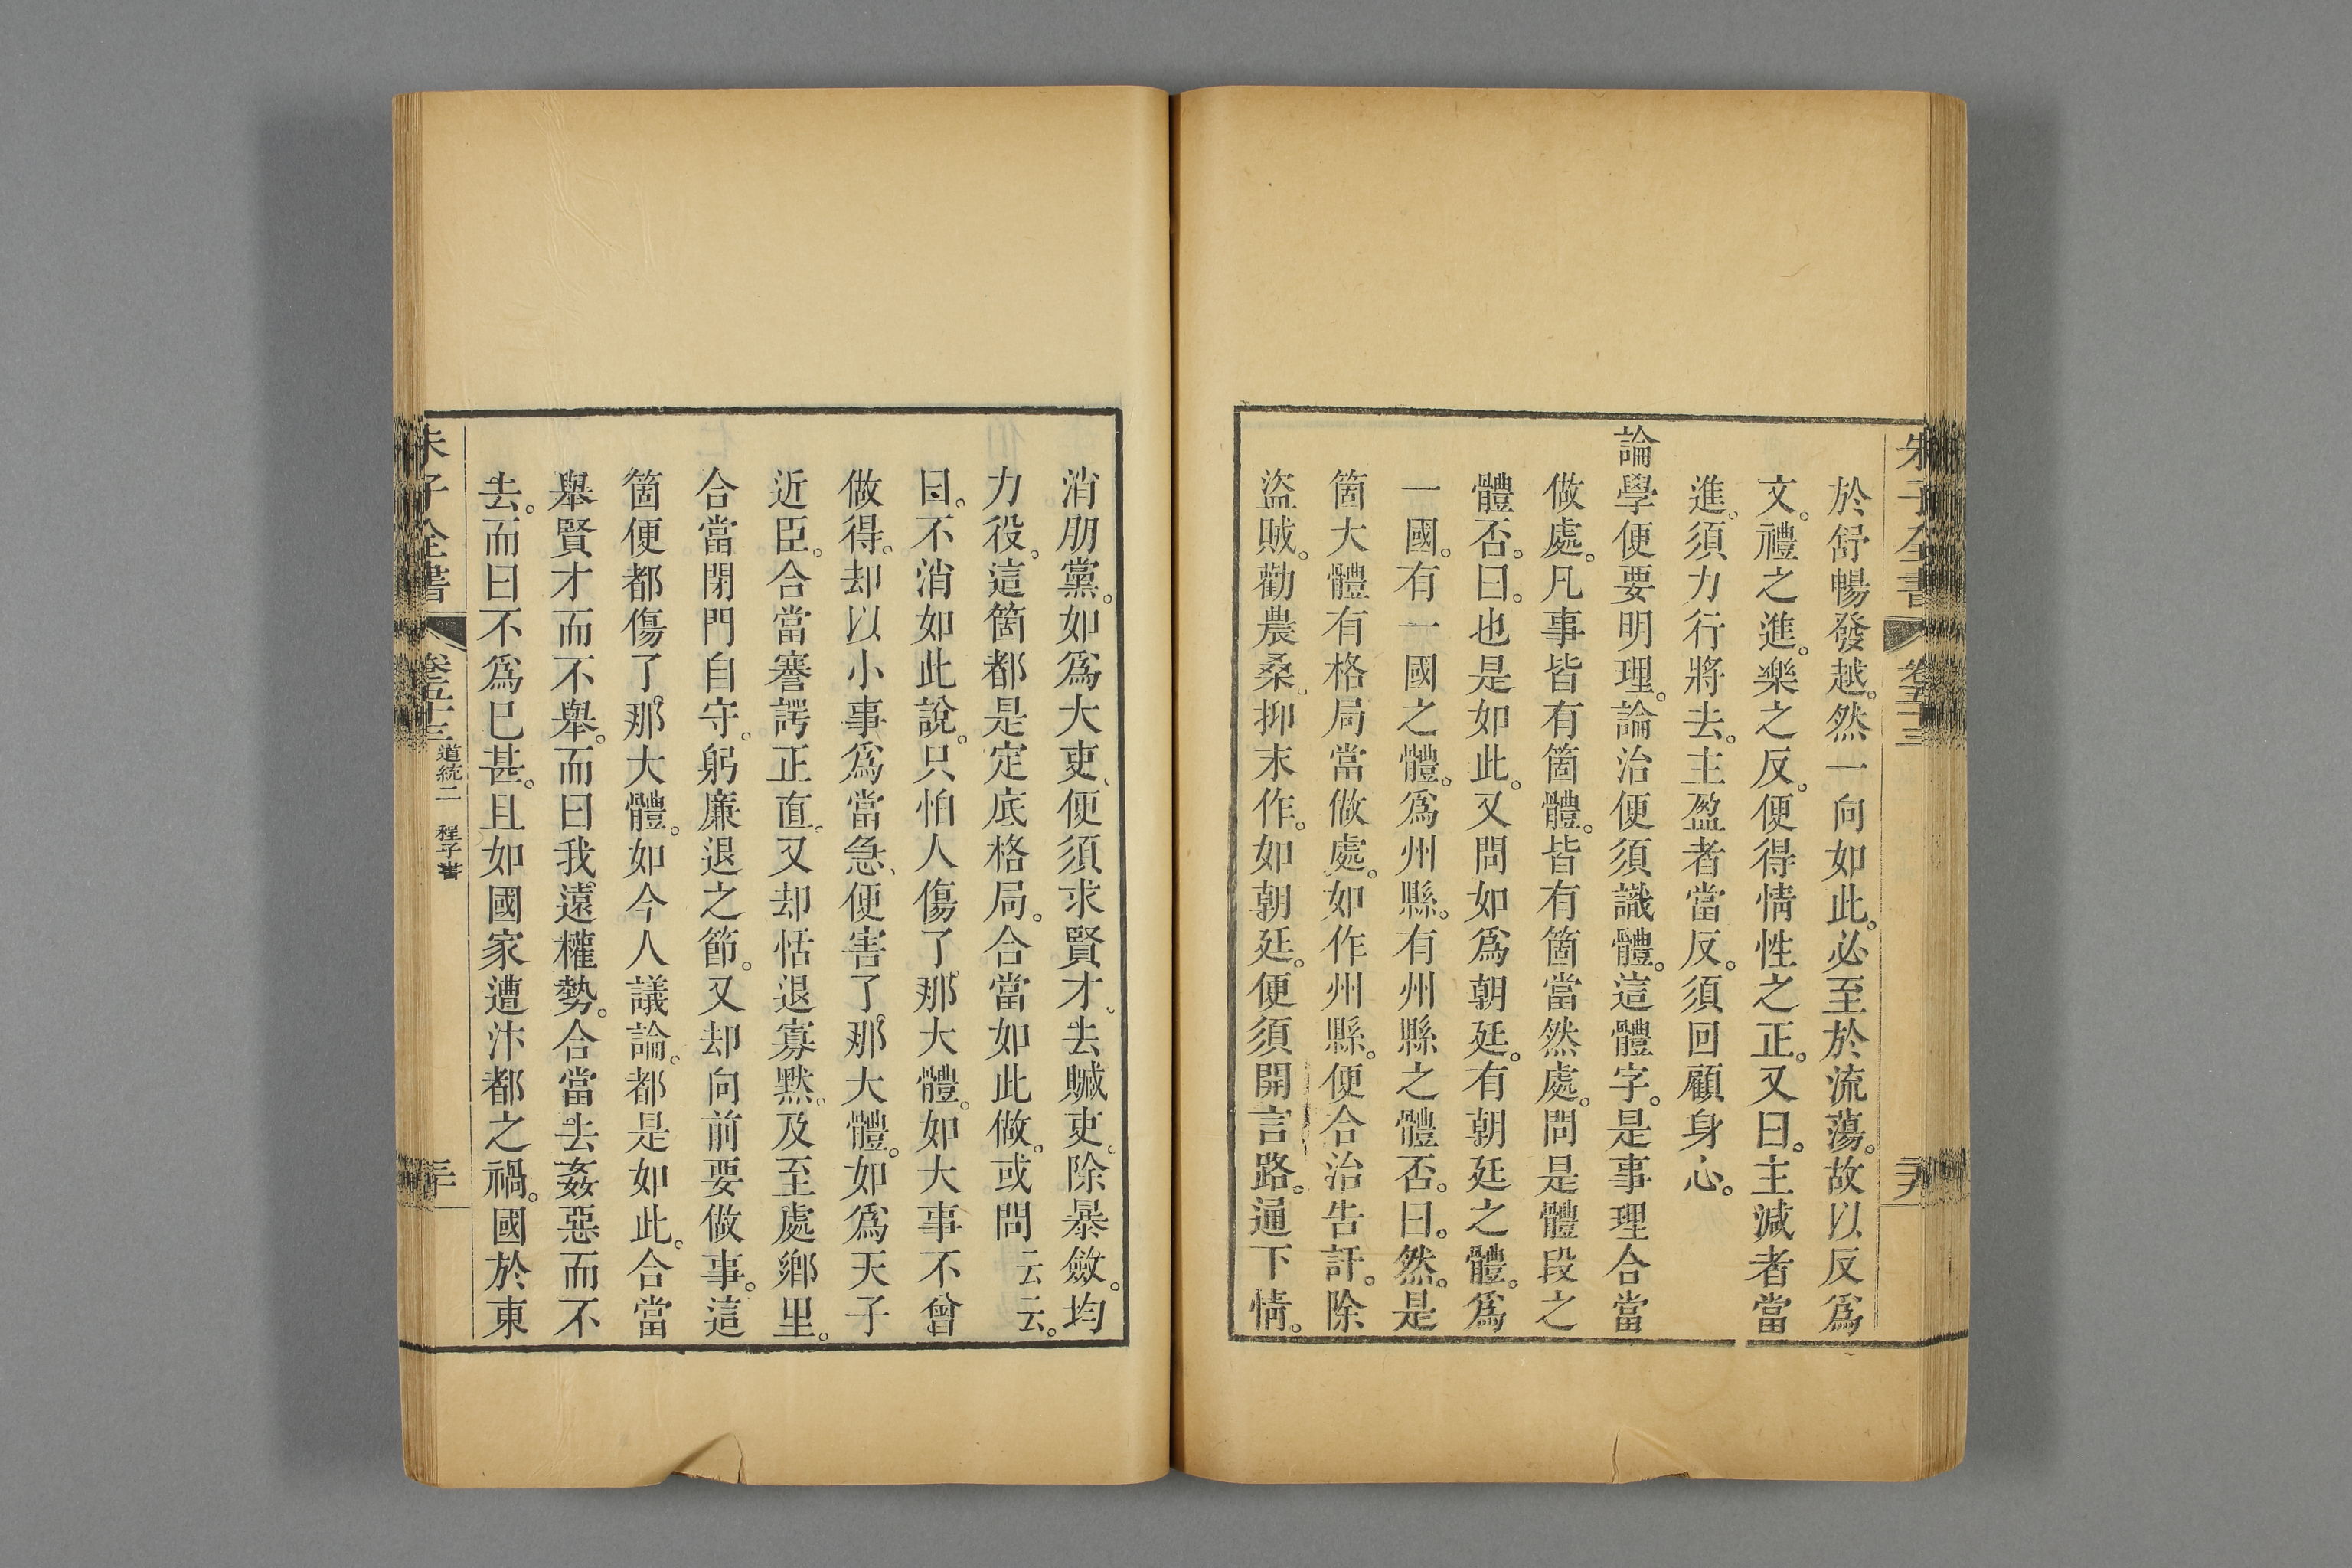 朱子全書 卷五十三 
於舒暢發越。然一向如此。必至於流蕩。故以反爲
文。禮之進。樂之反。便得情性之正。又曰。主減者當
進。須力行將去。主盈者當反。須回顧身心。
論學便要明理。論治便須識體。這體字。是事理合當
做處。凡事皆有箇體。皆有箇當然處。問是體段之
體否。曰。也是如此。又問如爲朝廷。有朝廷之體。爲
一國。有一國之體。爲州縣。有州縣之體否。曰。然。是
箇大體有格局當做處。如作州縣。便合治告訐。除
盜賊。勸農桑。抑末作。如朝廷。便須開言路。通下情。
消朋黨。如爲大吏、便須求賢才。去贓吏。除暴斂。均
力役。這箇都是定底格局。合當如此做。或問云云。
曰。不消如此說。只怕人傷了那大體。如大事不曾
做得。却以小事爲當急、便害了那大體。如爲天子
近臣。合當謇諤正直。又却恬退寡黙。及至處鄉里。
合當閉門自守。躬廉退之節。又却向前要做事。這
箇便都傷了那大體。如今人議論。都是如此。合當
舉賢才而不舉。而曰我遠權勢。合當去姦惡而不
去。而曰不爲已甚。且如國家遭汴都之禍。國於東
朱子全書 卷五十三 道統二 程子書 三十